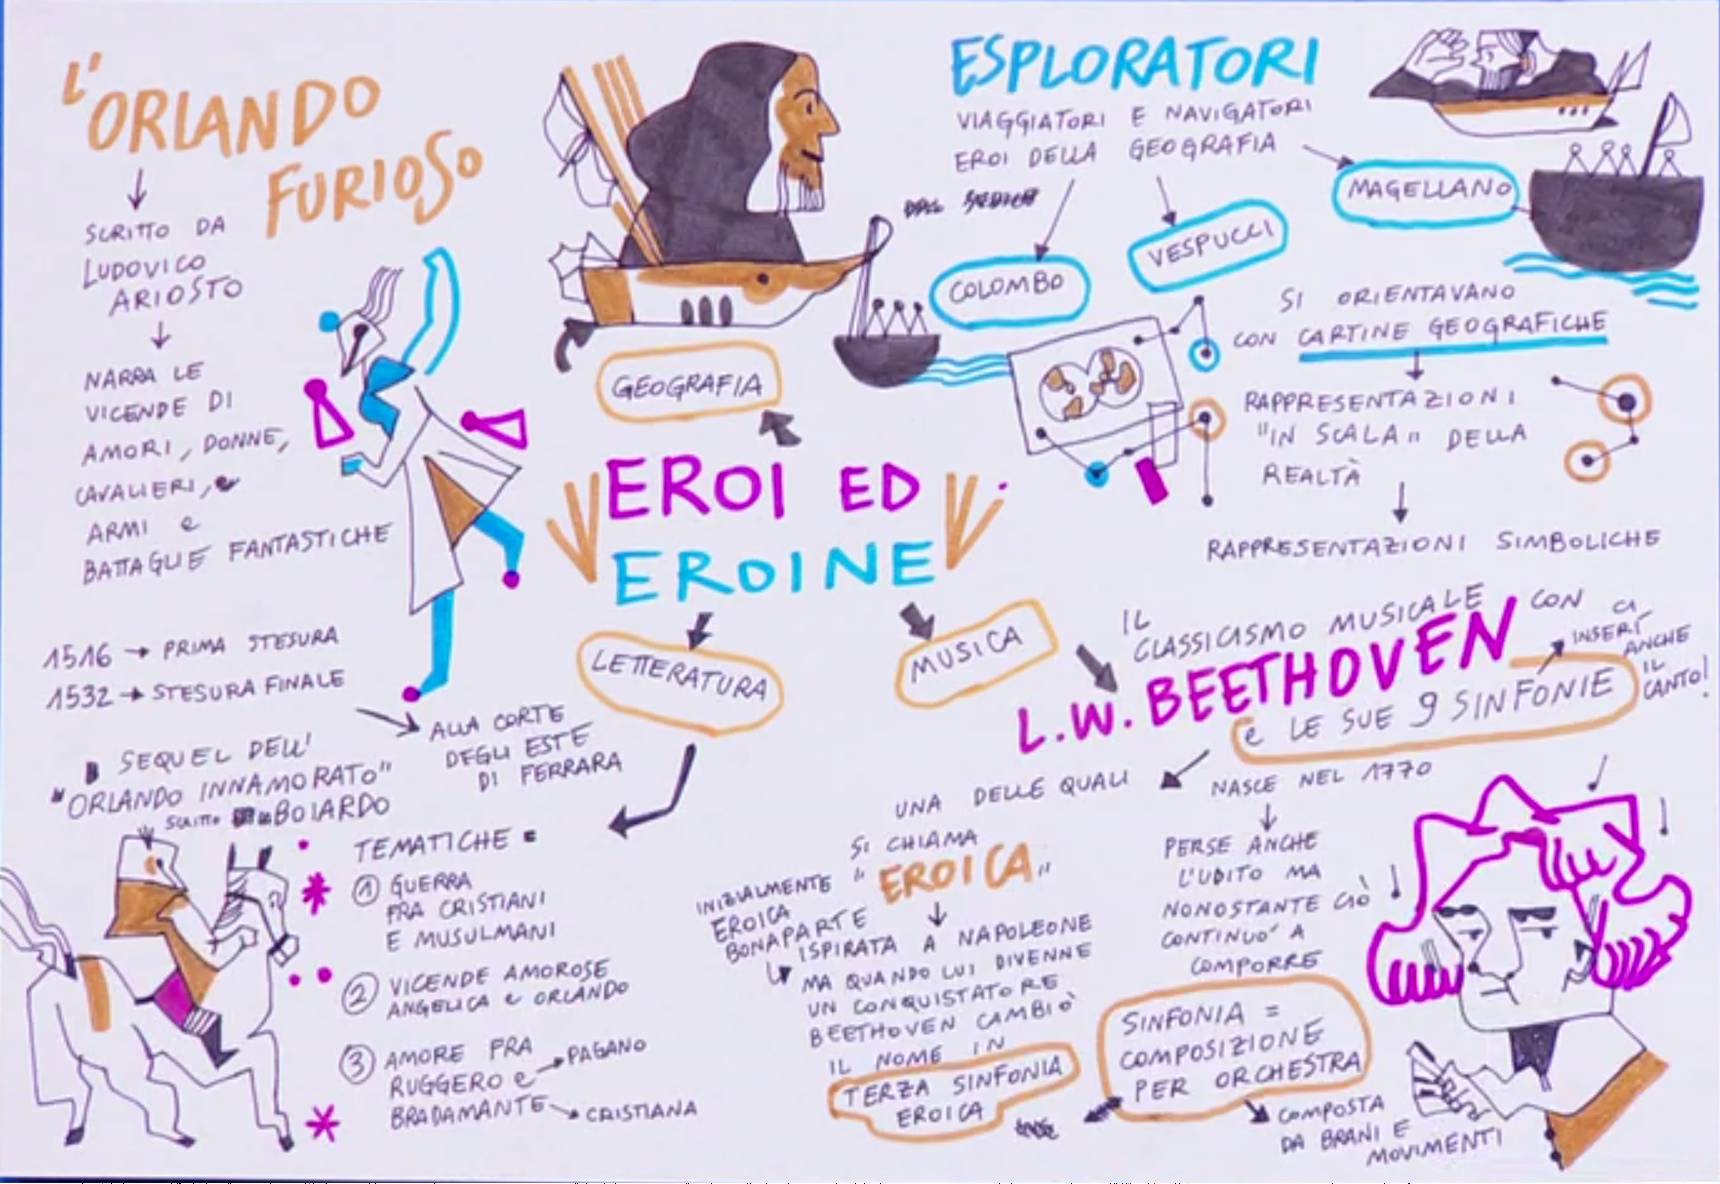 L'ORLANDO
FURIOSO
SCRITTO DA
LUDOVICO
ARIOSTO
NARRA LE
VICENDE DI
AMORI, DONNE,
CAVALIERI, e
ARMI e
BATTAGLIE FANTASTICHE
1516 → PRIMA STESURA
1532 → STESURA FINALE
ALLA CORTE
DEGLI ESTE
DI FERRARA
SEQUEL DELL'
"ORLANDO INNAMORATO"
SCRITTO BOIARDO
GEOGRAFIA
EROI ED
EROINE
LETTERATURA
MUSICA
TEMATICHE
① GUERRA
FRA CRISTIANI
E MUSULMANI
② VICENDE AMOROSE
ANGELICA e ORLANDO
③ AMORE FRA
RUGGERO e → PAGANO
BRADAMANTE → CRISTIANA
ESPLORATORI
VIAGGIATORI E NAVIGATORI
EROI DELLA GEOGRAFIA
COLOMBO
VESPUCCI
MAGELLANO
SI ORIENTAVANO
CON CARTINE GEOGRAFICHE
RAPPRESENTAZIONI
"IN SCALA" DELLA
REALTÀ
RAPPRESENTAZIONI SIMBOLICHE
IL
CLASSICISMO MUSICALE CON
L.W. BEETHOVEN
e LE SUE 9 SINFONIE
CI
INSERÌ
ANCHE
IL
CANTO!
UNA DELLE QUALI
SI CHIAMA
"EROICA"
INIZIALMENTE
EROICA
BONAPARTE
ISPIRATA A NAPOLEONE
MA QUANDO LUI DIVENNE
UN CONQUISTATORE
BEETHOVEN CAMBIÒ
IL NOME IN
TERZA SINFONIA
EROICA
NASCE NEL 1770
PERSE ANCHE
L'UDITO MA
NONOSTANTE CIÒ
CONTINUO' A
COMPORRE
SINFONIA =
COMPOSIZIONE
PER ORCHESTRA
COMPOSTA
DA BRANI E
MOVIMENTI